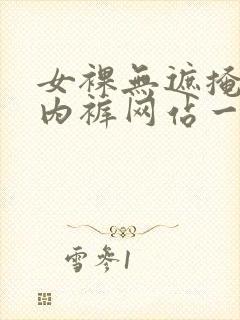 女裸無遮掩
内裤网佔一
雪参1